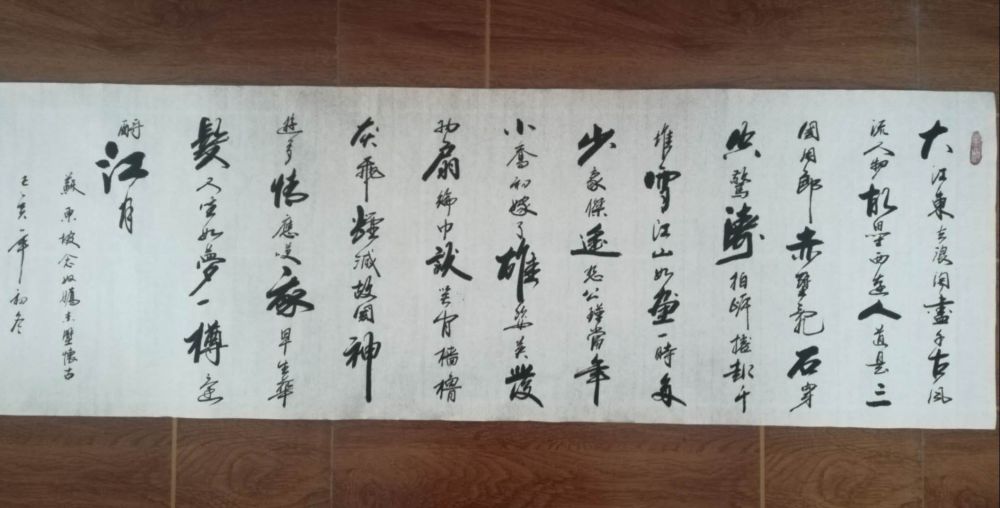 大江東去浪淘盡千古風
流人物故壘西邊人道是三
國周郎赤壁亂石穿
空驚濤拍岍捲起千
堆雪江山如畫一時多
少豪傑遙想公瑾當年
小喬初嫁了雄姿英發
羽扇綸巾談笑間檣櫓
灰飛煙滅故國神
遊多情應笑我早生華
髮人生如夢一樽還
酹江月
蘇東坡念奴嬌赤壁懷古
亥年初冬